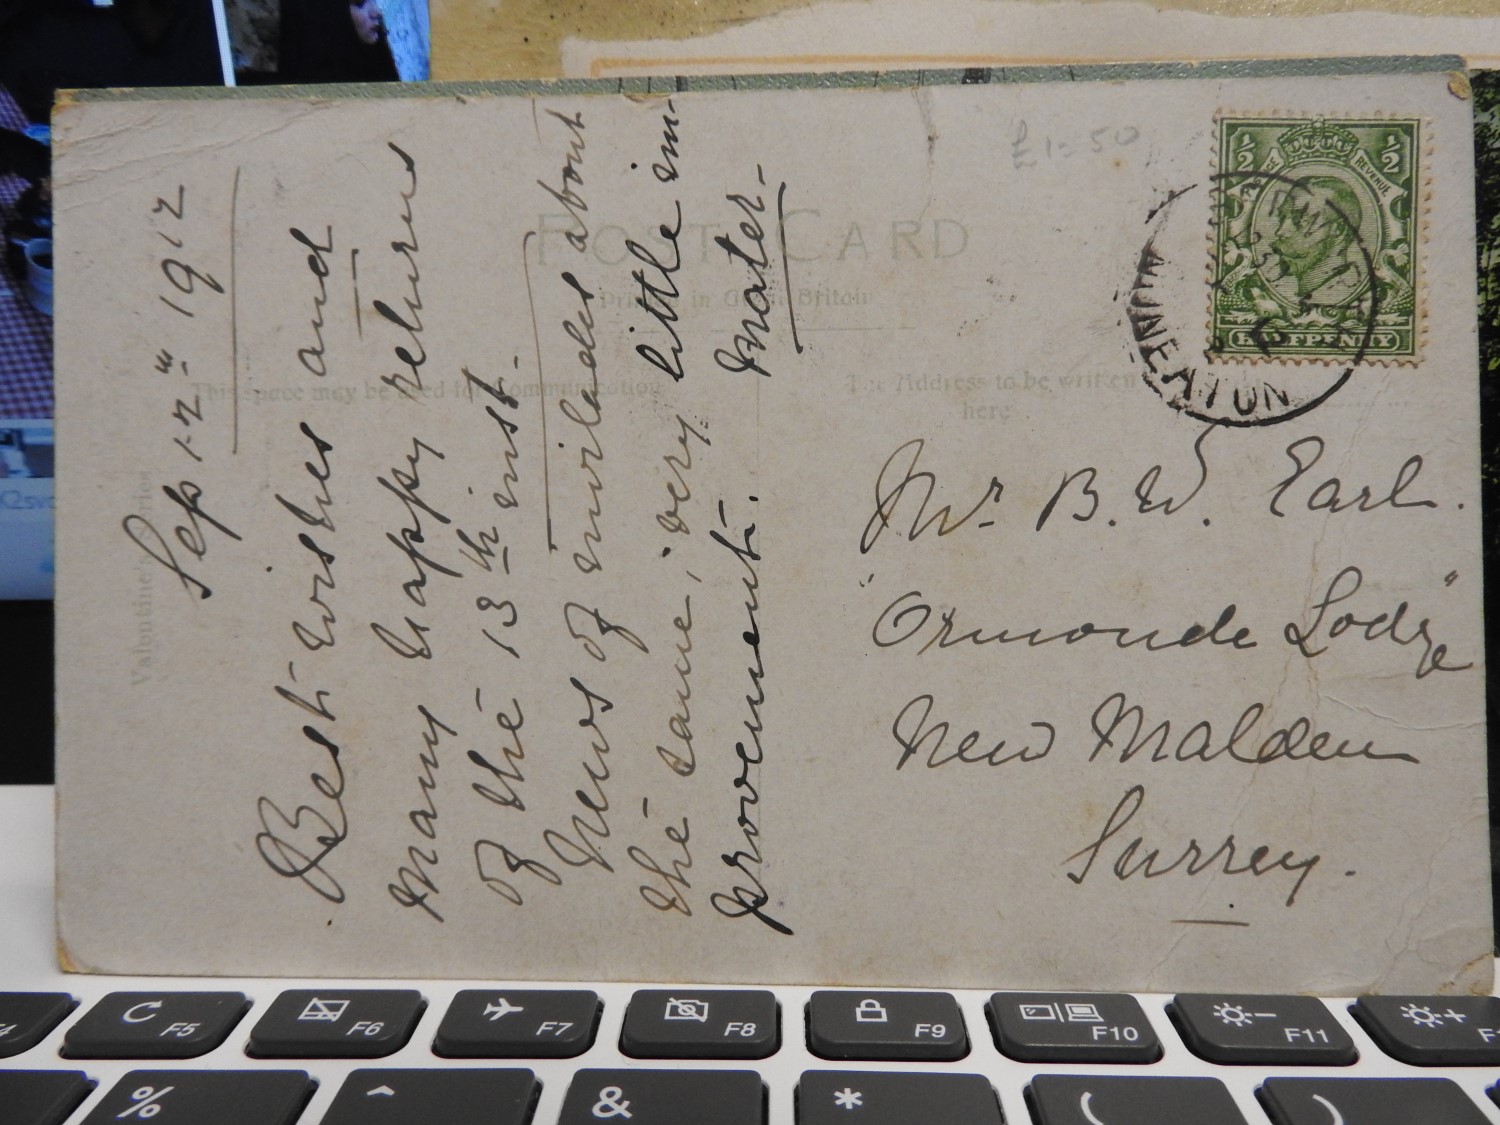 Sep 12th 1912
Best wishes and
many happy returns
of the 13th inst.
News of invilades about
the same, very little im-
provement. Mater.
£1.50
POST CARD
Printed in Great Britain
This space may be used for Communication
The Address to be written
here
Valentine's Series
½ ½
REVENUE
HALFPENNY
NUNEATON
Mr B. W. Earl.
"Ormonde Lodge"
New Malden
Surrey.
F5
F6
F7
F8
F9
F10
F11
% ^ & * ( )